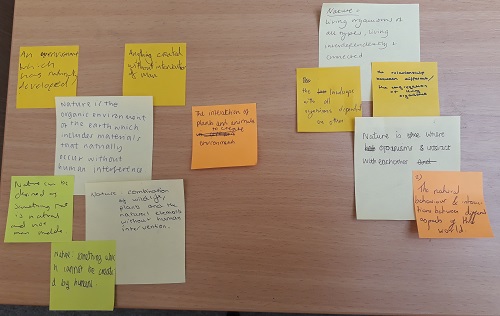 An environment
which
has naturally
developed!
Anything created
without intervention
of man
Nature is the
organic environment
or the earth which
includes materials
that natually
occur without
human interfering
The interaction of
plants and animals
to create
environment
Nature can be
defined as
something that
is natural
and not
man made
Nature: combination
of wildlife,
plants and the
natural elements
without human
intervention.
nature: something whi
h cannot be create
d by humans.
Nature -
Living organisms of
all types, living
interdependently &
connected
the landscape
with all
organisms dependent
on other
the relationship
between different
living organisms
Nature is where
organisms interact
with eachother
The natural
behaviour &
between different
aspects of the
world.